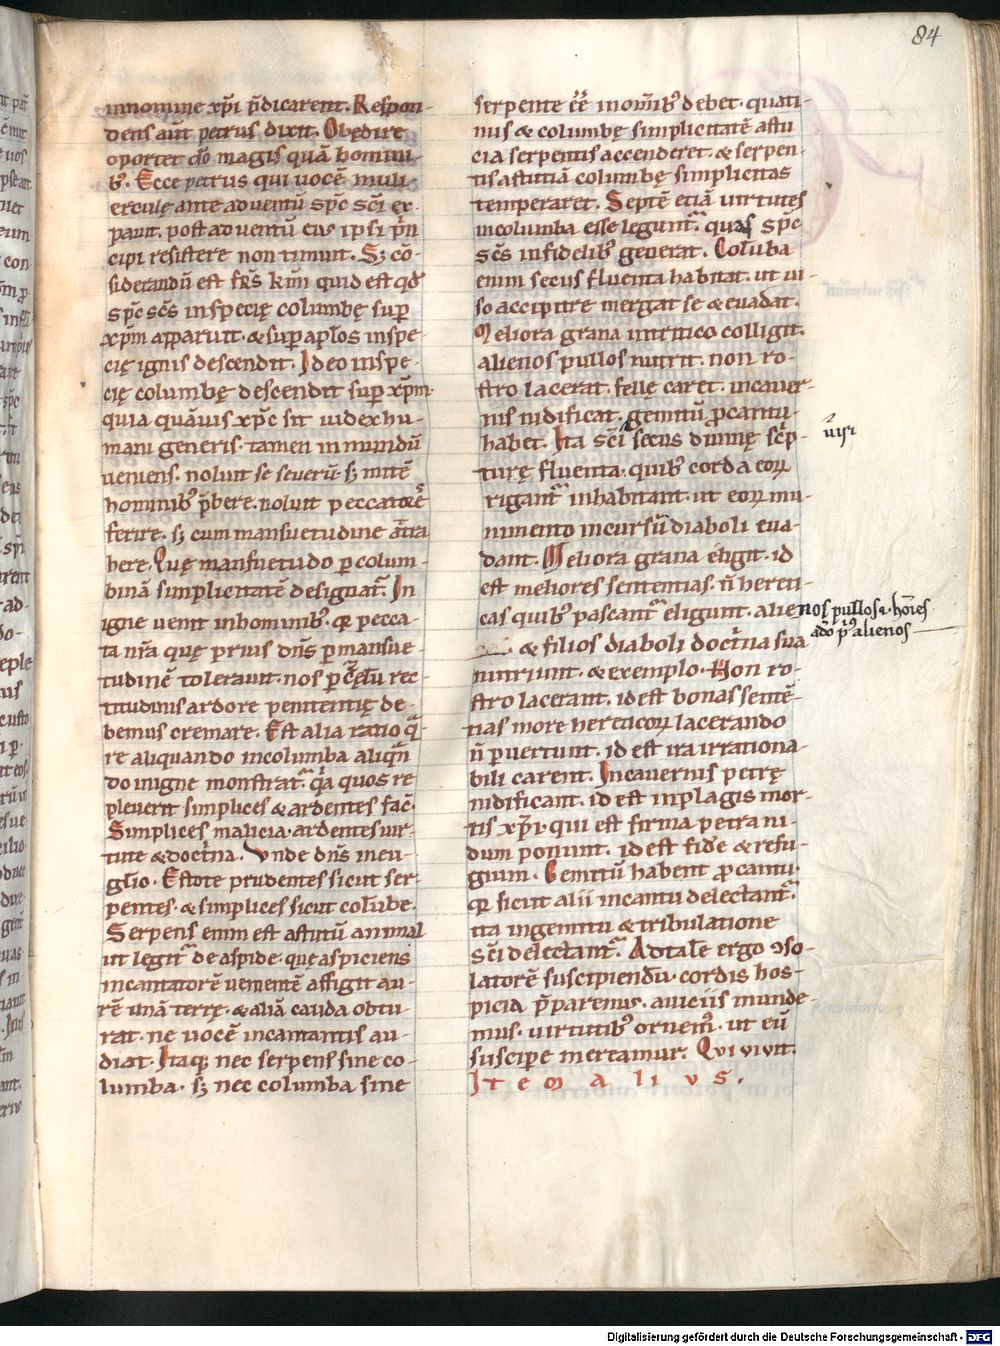 84
innomine xp̄i p̄dicarent. Respon-
dens aut̄ petrus dixit. Obędire
oportet dō magis quā homini-
b;. Ecce petrus qui uocē muli-
erculę ante aduentū sp̄c sc̄i ex-
pauit. post aduentū eius ipsi p̄n
cipi resistere non timuit. S; cō-
siderandū est fr̄s k̄mi quid est qd̄
sp̄c sc̄s inspecię columbę sup̄
xp̄m apparuit. & sup apl̄os inspe-
cię ignis descendit. Ideo inspe-
cię columbę descendit sup xp̄m.
quia quāuis xp̄c sit iudex hu-
mani generis. tamen in mundū
ueniens. noluit se seuerū. s; mitē
hominib; p̄bere. noluit peccatorēs
ferire. s; cum mansuetudine att̄ra
here. Quę mansuetudo p colum-
binā simplicitatē designat̄. In
igne uenit inhominib;. qr pecca-
ta nr̄a quę prius dn̄s p mansue-
tudinē tolerauit. nos p zelū rec-
titudinis ardore penitentię de-
bemus cremare. Est alia ratio qᵃ
re aliquando incolumba aliqn̄
do inigne monstrat̄. qᵃ quos re
pleuerit simplices & ardentes fac̄.
Simplices malicia. ardentes uir-
tute & doct̄na. Vnde dn̄s in eu-
glio. Estote prudentes sicut ser-
pentes. & simplices sicut colūbe.
Serpens enim est astutū animal
ut legit̄ de aspide. quę aspiciens
incantatorē uementē affigit au-
rē unā terrę. & aliā cauda obtu-
rat. ne uocē incantantis au-
diat. Itaq; nec serpens sine co-
lumba. s; nec columba sine
serpente ēē inom̄ib; debet. quati-
nus & columbę simplicitatē astu
cia serpentis accenderet. & serpen-
tis astutiā columbę simplicitas
temperaret. Septē etiā uirtutes
incolumba esse legunt̄. quas sp̄c
sc̄s infidelib; generat. Colūba
enim secus fluenta habitat. ut ui-
so accipitre mergat se & euadat.
Meliora grana intritico colligit.
alienos pullos nutrit. non ro-
stro lacerat. felle caret. incauer-
nis nidificat. gemitū p cantu
habet. Ita sc̄i secus diuinę sc̄p-
turę fluenta. quib; corda eoꝝ
rigant̄ inhabitant. ut eoꝝ mu-
nimento incursū diaboli eua-
dant. Meliora grana eligit. id
est meliores sententias. n̄ hereti-
cas quib; pascant̄ eligunt. alie
nos pullos .i. hoīes
ado p̄ alienos
& filios diaboli doct̄na sua
nutriunt. & exemplo. Non ro-
stro lacerant. id est bonas sentē-
tias more hereticoꝝ lacerando
n̄ puertunt. id est ira irrationa-
bili carent. Incauernis petrę
nidificant. id est inplagis mor-
tis xp̄i. qui est firma petra ni-
dum ponunt. id est fidē & refu-
gium. Gemitū habent p cantu.
qr sicut alii incantu delectant̄.
ita ingemitu & tribulatione
sc̄i delectant̄. Ad tale ergo ↄso-
latorē suscipiendū. cordis hos-
picia p̄paremus. auiciis munde
mus. uirtutib; ornem̄. ut eū
suscipe mereamur. Qui uiuit.
Item alius.
Digitalisierung gefördert durch die Deutsche Forschungsgemeinschaft · DFG